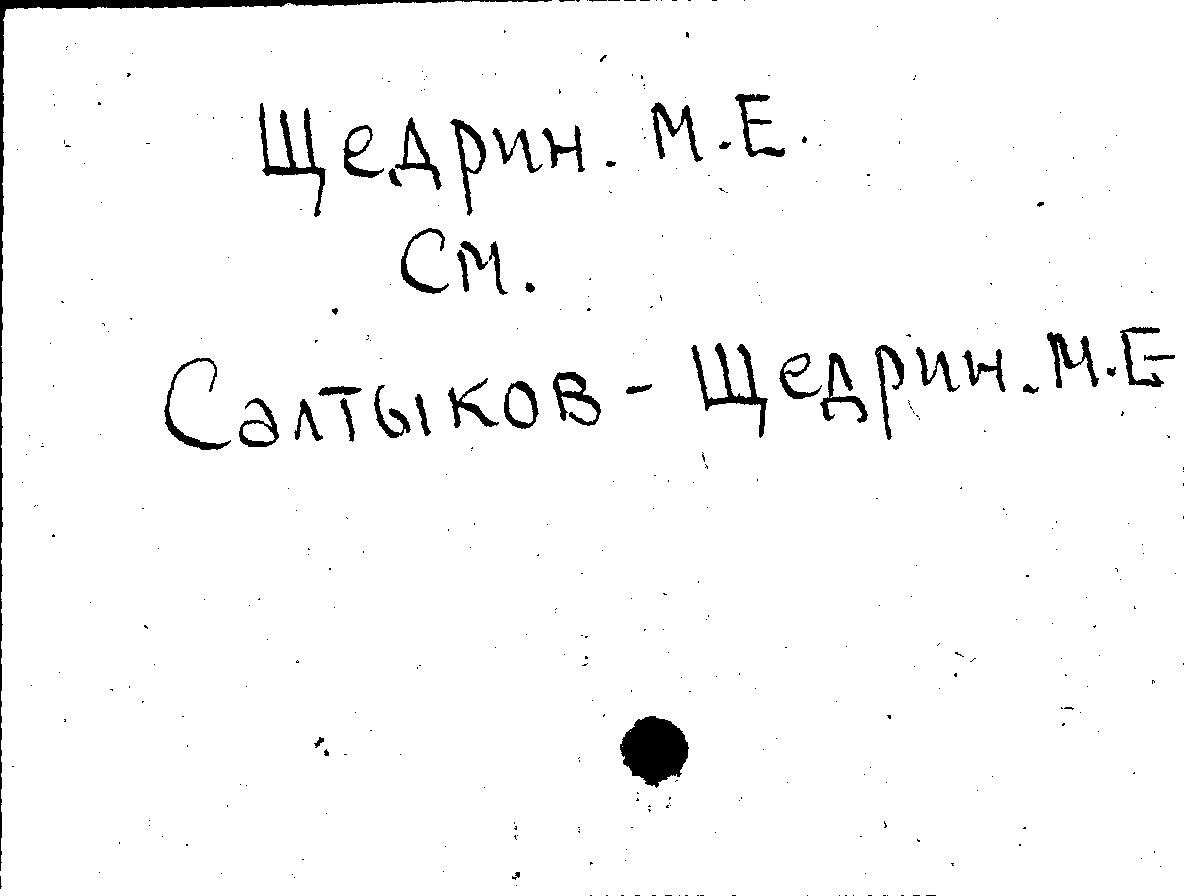 Щедрин. М.Е.
См.
Салтыков - Щедрин. М.Е